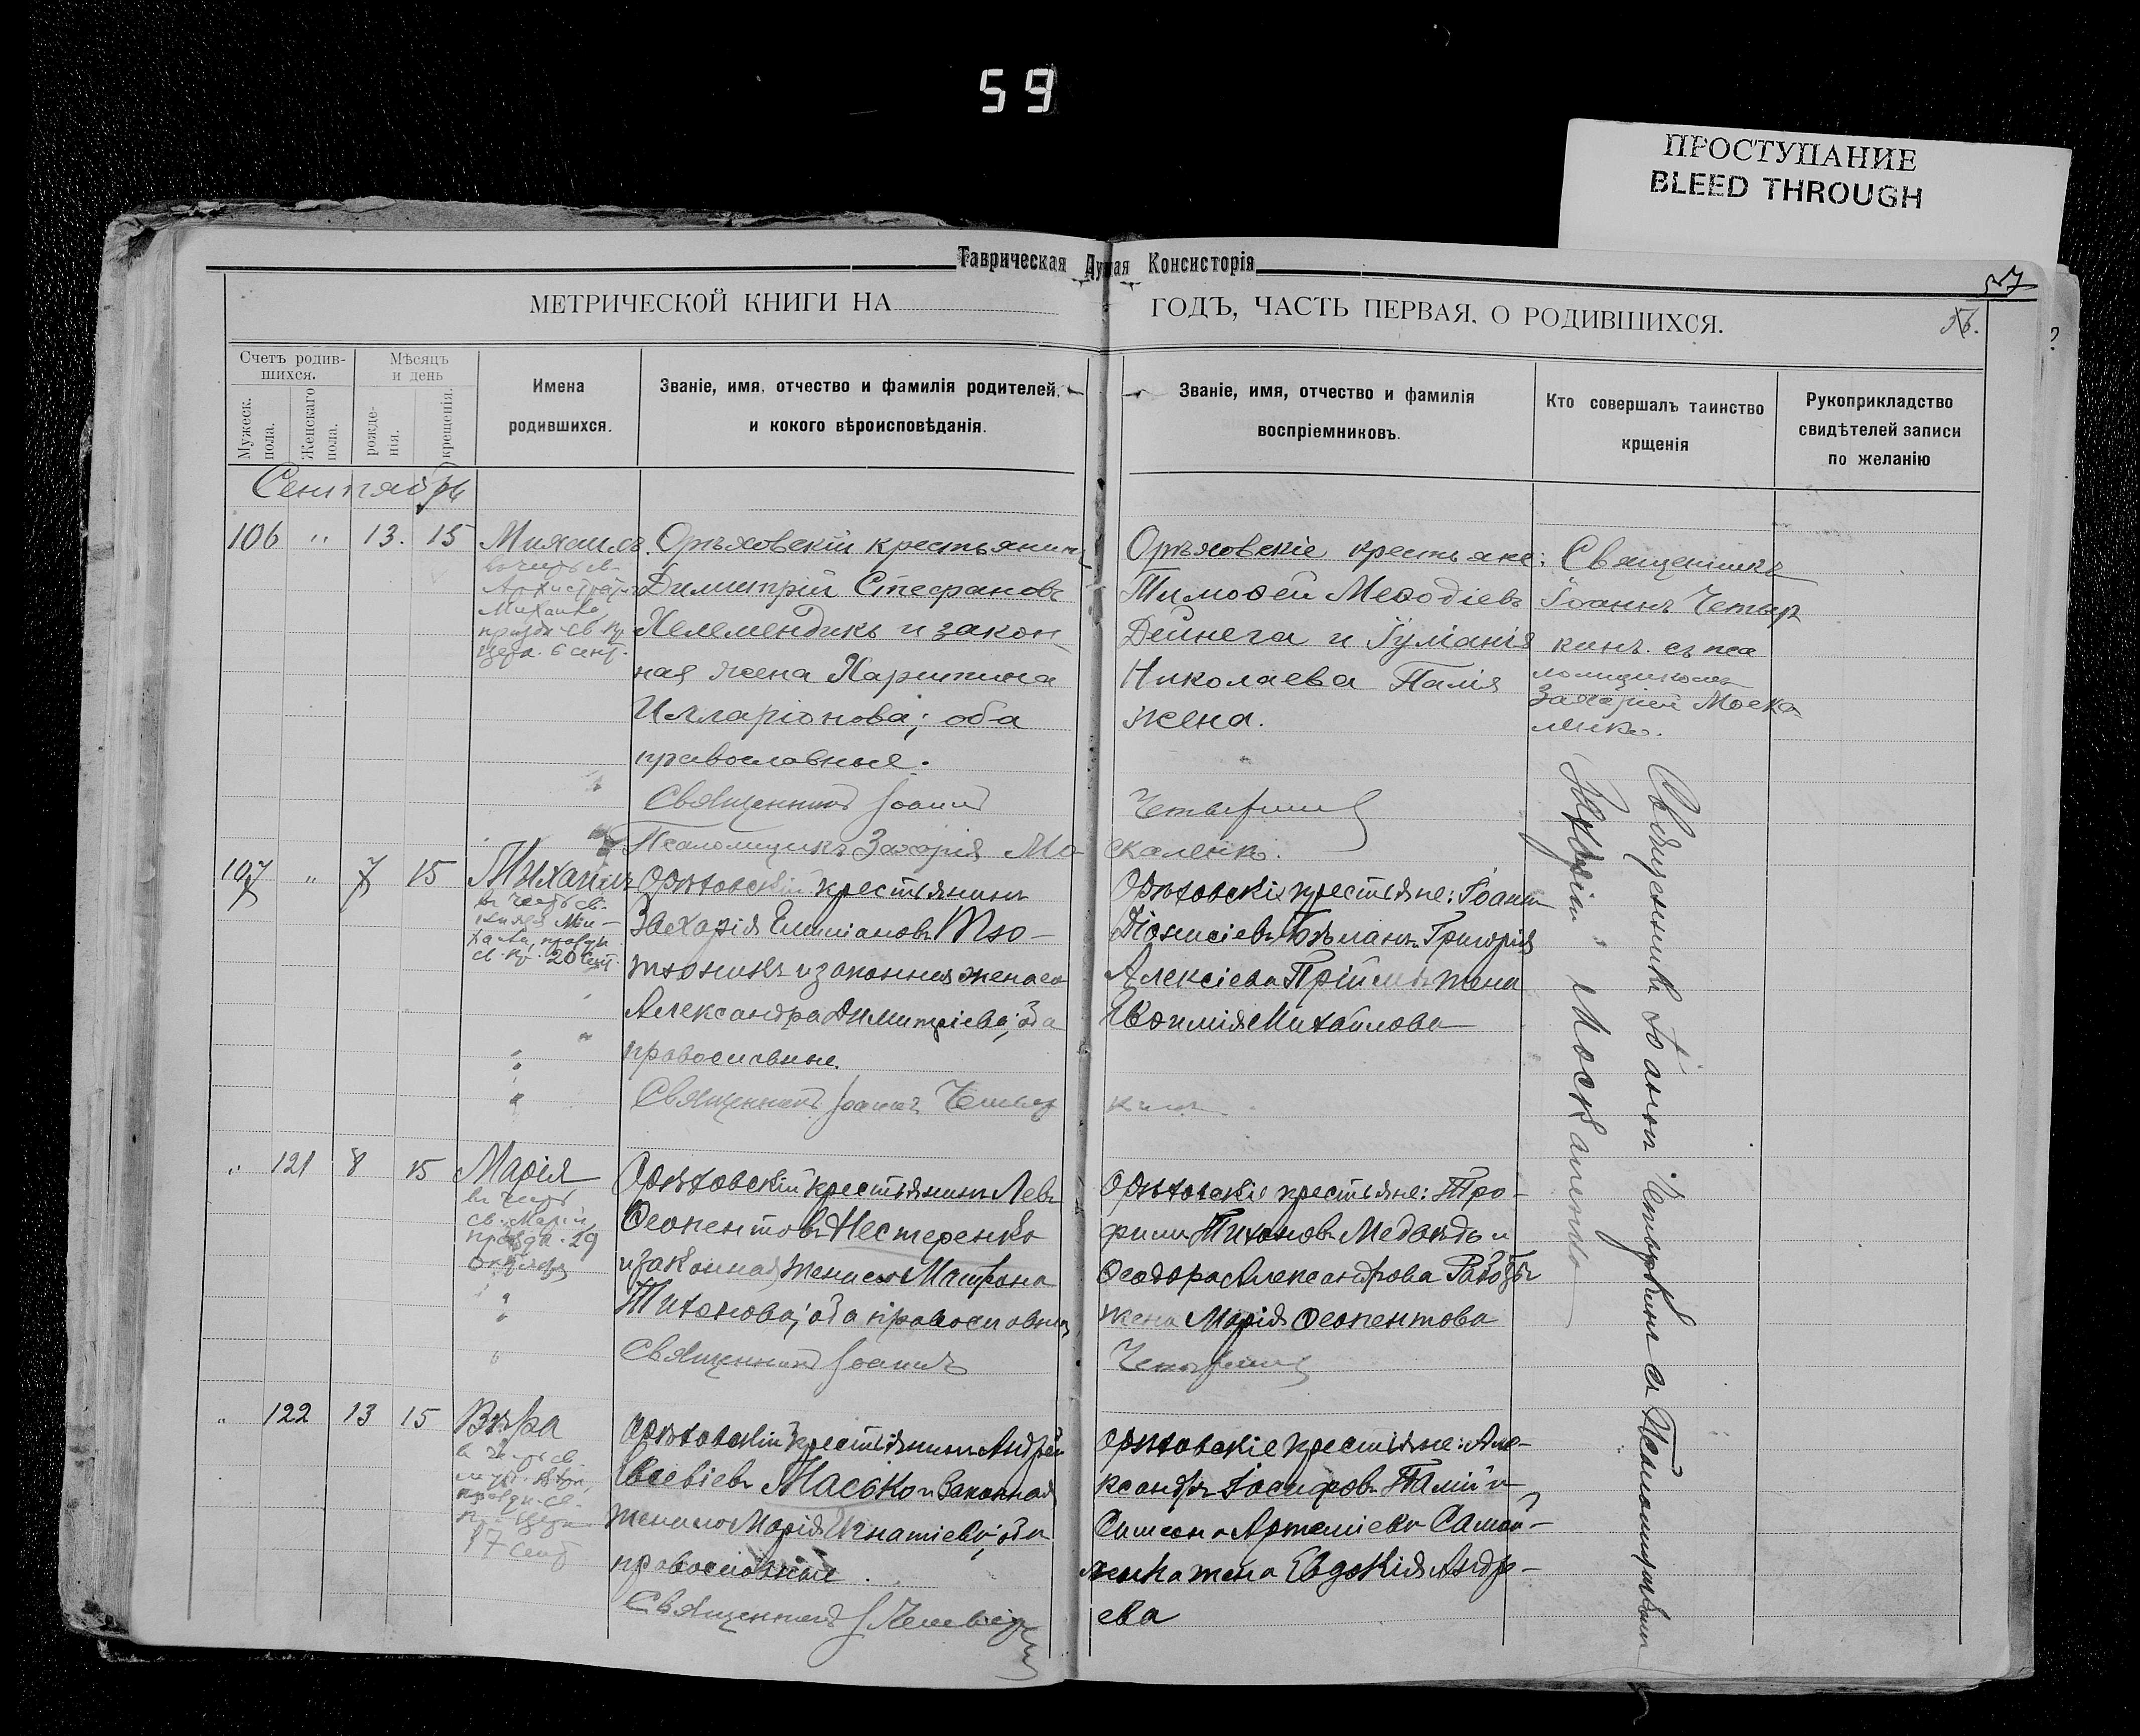 59
ПРОСТУПАНИЕ
BLEED THROUGH
Таврическая Духная Консисторія
57
МЕТРИЧЕСКОЙ КНИГИ НА ГОДЪ, ЧАСТЬ ПЕРВАЯ, О РОДИВШИХСЯ.
56.
Счетъ родив-
шихся.
Мужеск.
пола.
Женскаго
пола.
Мѣсяцъ
и день
рожде-
нія.
крещенія.
Имена
родившихся.
Званіе, имя, отчество и фамилія родителей,
и кокого вѣроисповѣданія.
Званіе, имя, отчество и фамилія
воспріемниковъ.
Кто совершалъ таинство
крщенія
Рукоприкладство
свидѣтелей записи
по желанію
Сентябрь
106 " 13. 15
Михаилъ.
въ честь св.
Архистратига
Михаила,
праздн. св. Цер
6 сент.
Орѣховскій крестьянинъ
Димитрій Стефановъ
Келемендикъ и закон
ная жена Харитина
Илларіонова; оба
православные.
Священникъ Іоаннъ
Псаломщикъ Захарія Мо
Орѣховскіе крестьяне:
Тимоѳей Меѳодіевъ
Дейнега и Іуліанія
Николаева Палія
жена.
Четыркинъ
скаленко.
Священникъ
Іоаннъ Четыр
кинъ съ пса
ломщикомъ
Захаріей Моска
ленко.
107 " 7 15
Михаилъ
въ честь св.
князя Ми-
хаила, праздн.
20 сент.
Орѣховскій крестьянинъ
Захарія Емиліановъ Тю-
тюникъ и законная жена его
Александра Димитріева; оба
православные.
Священникъ Іоаннъ Четыр
Орѣховскіе крестьяне: Іоаннъ
Діонисіевъ Бѣланъ Григорія
Алексіева Прійма жена
Евѳимія Михайлова
кинъ
" 121 8 15
Марія
въ честь
св. Маріи,
праздн. 29
Октября
Орѣховскій крестьянинъ Левъ
Ѳеопентовъ Нестеренко
и законная жена его Матрона
Тихонова; оба православные
Священникъ Іоаннъ
Орѣховскіе крестьяне: Тро-
фимъ Тихоновъ Медвѣдь и
Ѳеодора Александрова
жена Марія Ѳеопентова
Четыркинъ
" 122 13 15
Вѣра
въ честь св.
муч. Вѣры,
праздн. св.
17 сент.
Орѣховскій крестьянинъ Андрей
Евсевіевъ Масько и законная
жена его Марія Игнатіева; оба
православные.
Священникъ І. Четыркинъ
Орѣховскіе крестьяне: Але-
ксандръ Іосифовъ Палій и
Симеона Артеміева Самой-
ленка жена Евдокія Андре-
ева
Священникъ Іоаннъ Четыркинъ съ Псаломщикомъ
Захаріей Москаленко